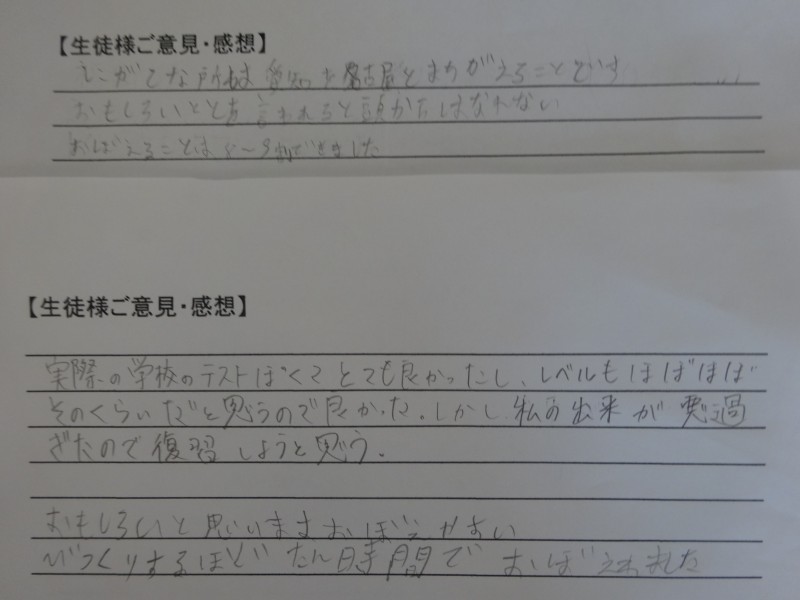 【生徒様ご意見・感想】
にがてな所は愛知を名古屋とまちがえることです
おもしろいことを言われると頭からはなれない
おぼえることは8〜9割できました
【生徒様ご意見・感想】
実際の学校のテストぽくてとても良かったし、レベルもほぼほぼ
そのくらいだと思うので良かった。しかし私の出来が悪過
ぎたので復習しようと思う。
おもしろいと思いますおぼえやすい
びっくりするほどたん時間でおぼえれました